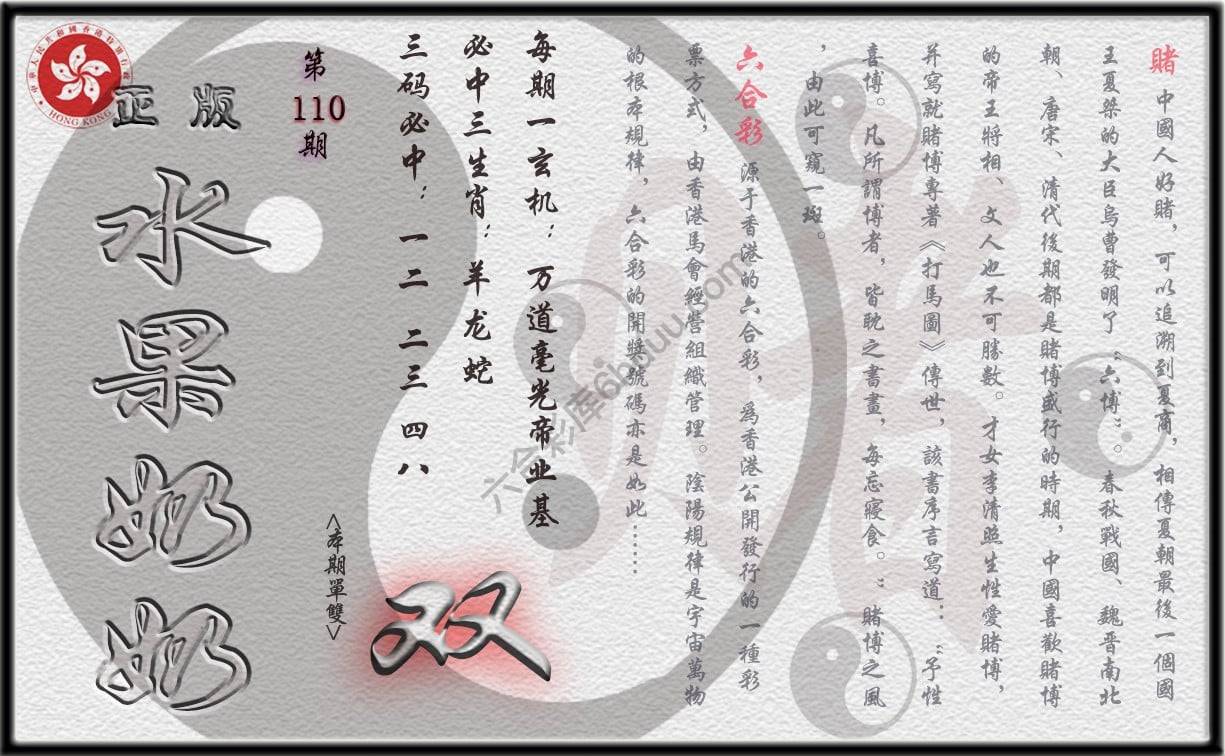 賭 中國人好賭，可以追溯到夏商，相傳夏朝最後一個國
王夏桀的大臣烏曹發明了“六博”。春秋戰國、魏晋南北
朝、唐宋、清代後期都是賭博盛行的時期，中國喜歡賭博
的帝王將相、文人也不可勝數。才女李清照生性愛賭博，
并寫就賭博專著《打馬圖》傳世，該書序言寫道：“予性
喜博。凡所謂博者，皆耽之書畫，每忘寢食。”賭博之風
，由此可窺一斑。
六合彩 源于香港的六合彩，爲香港公開發行的一種彩
票方式，由香港馬會經營組織管理。陰陽規律是宇宙萬物
的根本規律，六合彩的開獎號碼亦是如此……
每期一玄机：万道毫光帝业基
必中三生肖：羊龙蛇
三码必中：一二 二三 四八
<本期單雙>
双
第
110
期
正版
水果奶奶
中華人民共和國香港特別行政區
HONG KONG
六合彩库6hduu.com